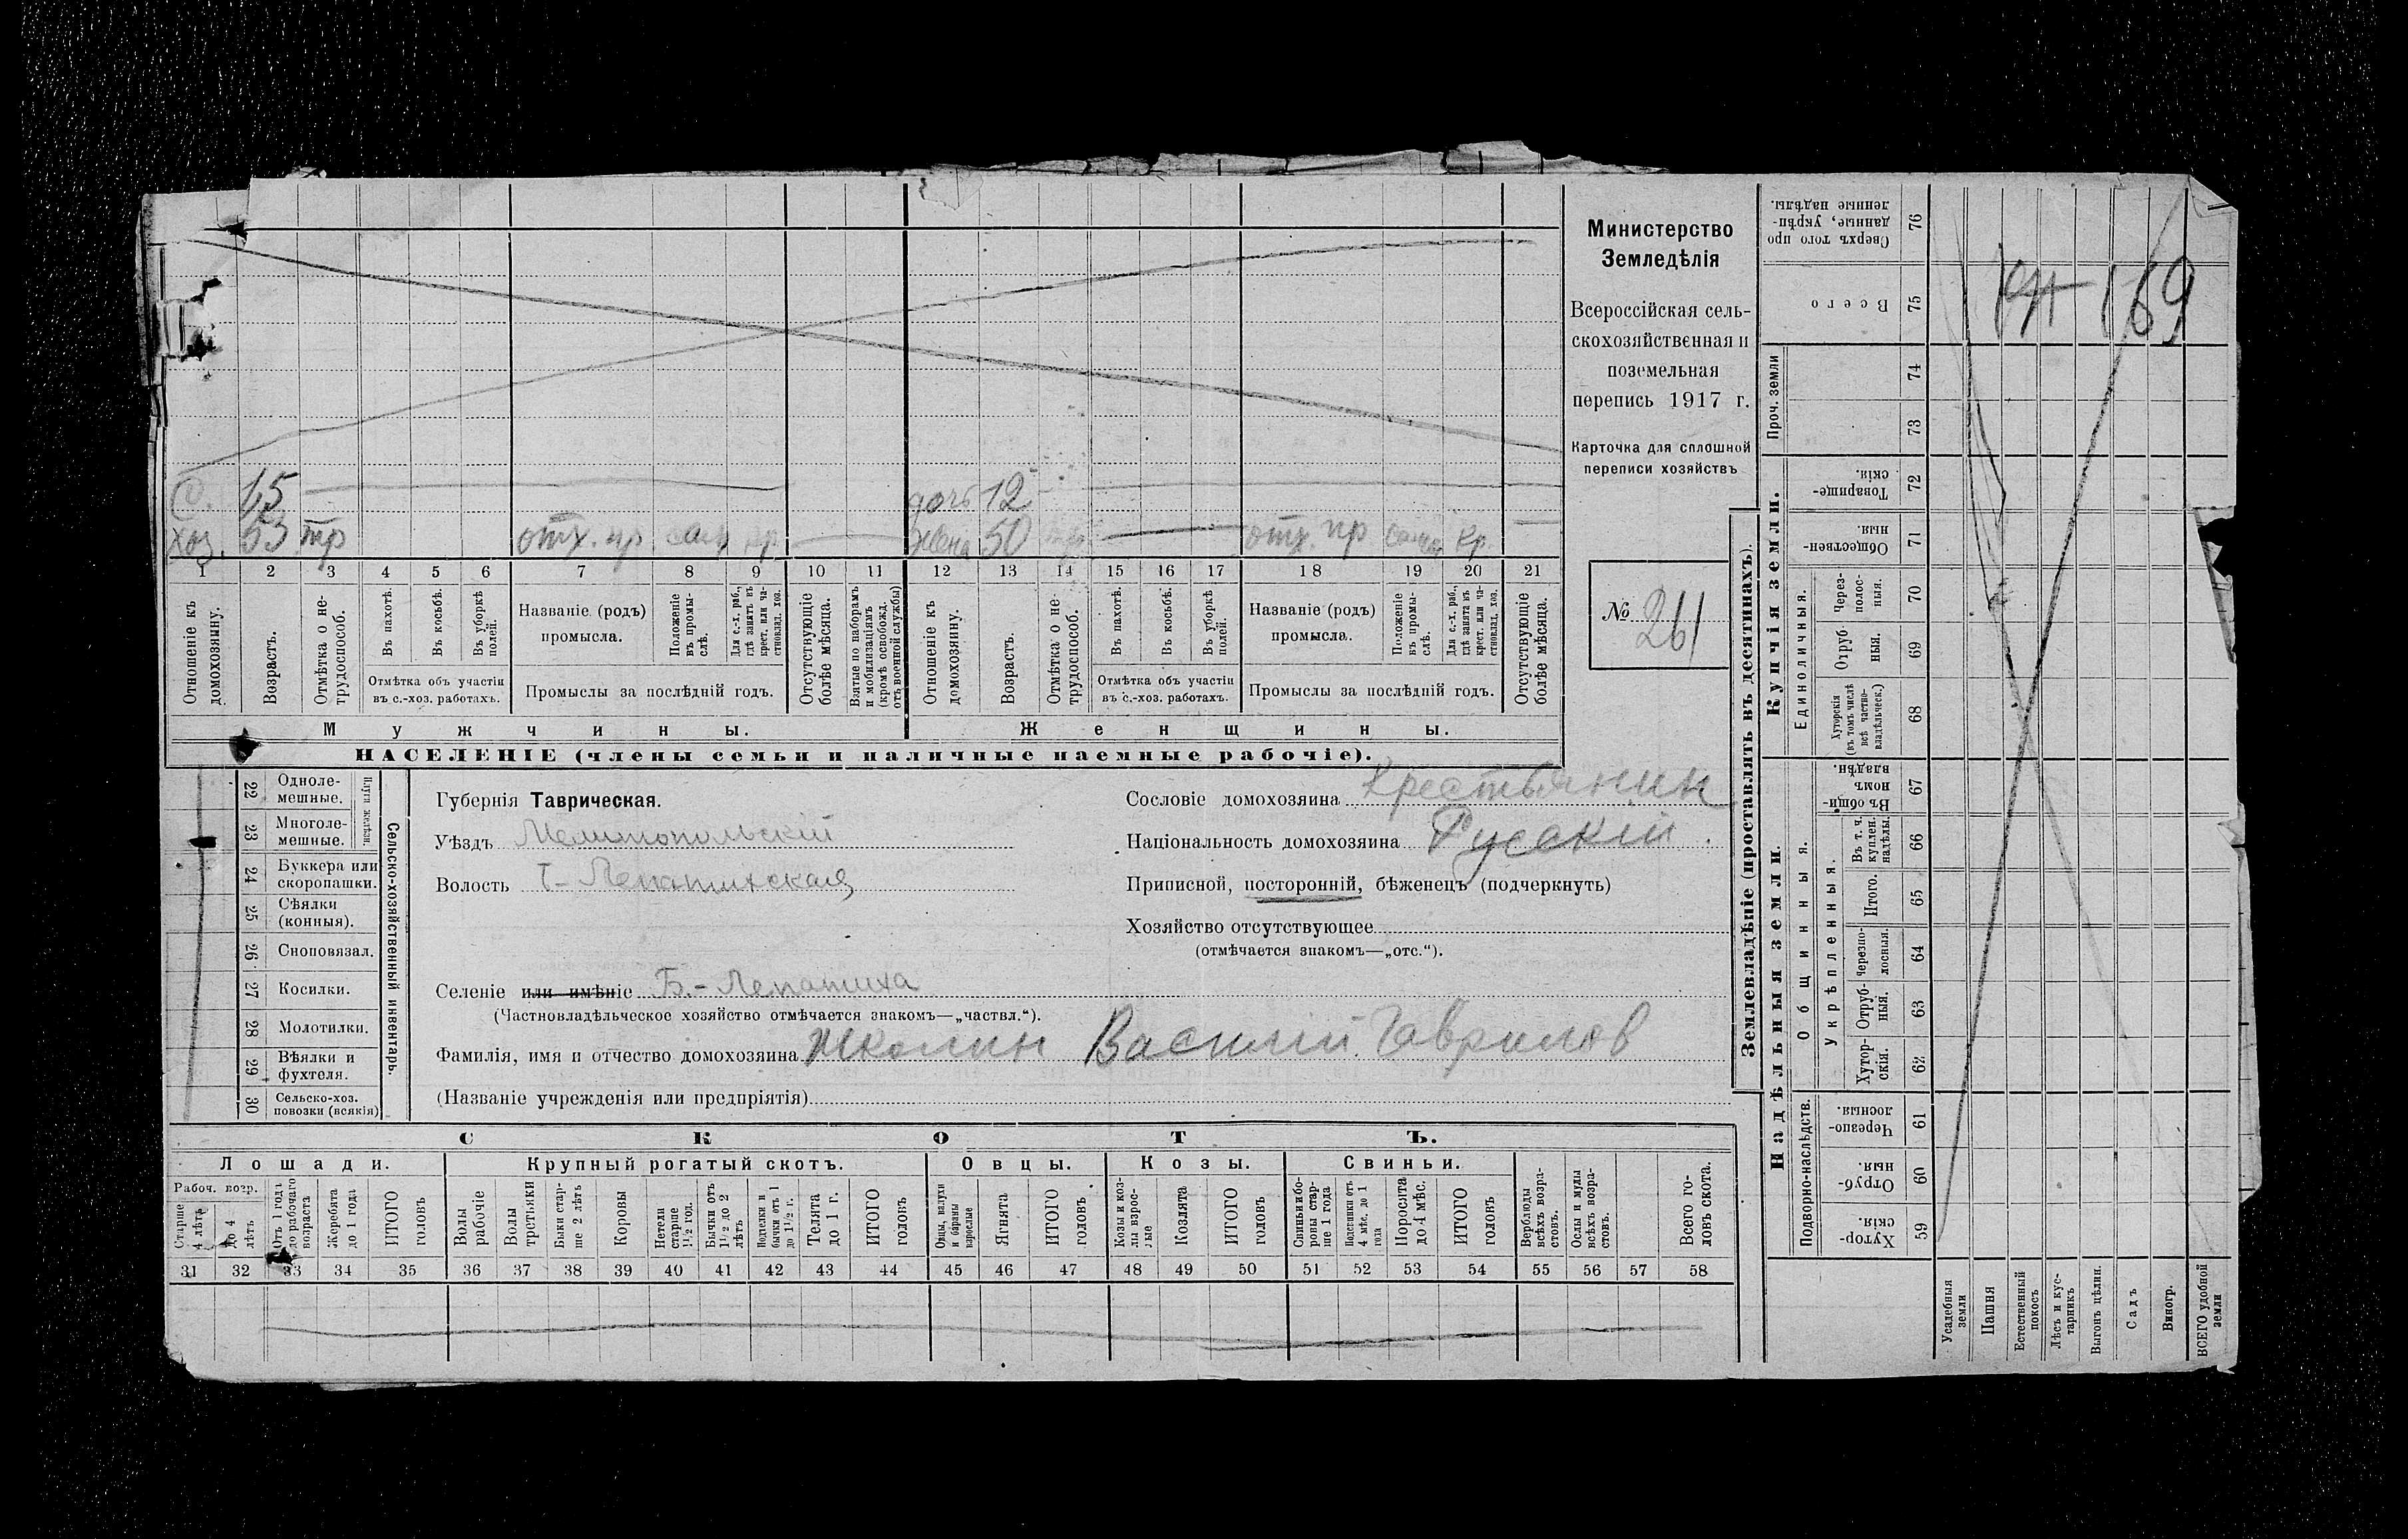 Министерство
Земледѣлія
Всероссійская сель-
скохозяйственная и
поземельная
перепись 1917 г.
Карточка для сплошной
переписи хозяйствъ
№ 261
С. 15 дочь 12
хоз. 53 тр отх. пр. сам кр жена 50 отх. пр сам кр.
1 2 3 4 5 6 7 8 9 10 11 12 13 14 15 16 17 18 19 20 21
Отношеніе къ домохозяину.
Возрастъ.
Отмѣтка о не-трудоспособ.
Въ пахотѣ.
Въ косьбѣ.
Въ уборкѣ полей.
Отмѣтка объ участіи
въ с.-хоз. работахъ.
Названіе (родъ)
промысла.
Положеніе въ промы-слѣ.
Для с.-х. раб., гдѣ занятъ въ крест. или ча-стновлад. хоз.
Промыслы за послѣдній годъ.
Отсутствующіе болѣе мѣсяца.
Взятые по наборамъ и мобилизаціямъ (кромѣ освобожд. отъ военной службы)
Отношеніе къ домохозяину.
Возрастъ.
Отмѣтка о не-трудоспособ.
Въ пахотѣ.
Въ косьбѣ.
Въ уборкѣ полей.
Отмѣтка объ участіи
въ с.-хоз. работахъ.
Названіе (родъ)
промысла.
Положеніе въ промы-слѣ.
Для с.-х. раб., гдѣ занята въ крест. или ча-стновлад. хоз.
Промыслы за послѣдній годъ.
Отсутствующіе болѣе мѣсяца.
Мужчины. Женщины.
НАСЕЛЕНІЕ (члены семьи и наличные наемные рабочіе).
22 Одноле-мешные.
23 Многоле-мешные.
Плуги желѣзн.
24 Буккера или скоропашки.
25 Сѣялки (конныя).
26 Сноповязал.
27 Косилки.
28 Молотилки.
29 Вѣялки и фухтеля.
30 Сельско-хоз. повозки (всякія)
Сельско-хозяйственный инвентарь.
Губернія Таврическая.
Уѣздъ Мелитопольскій
Волость Б-Лепатихская
Селеніе или имѣніе Б.-Лепатиха
(Частновладѣльческое хозяйство отмѣчается знакомъ—„частвл.“).
Фамилія, имя и отчество домохозяина Василій Гаврилов
(Названіе учрежденія или предпріятія)
Сословіе домохозяина Крестьянин
Національность домохозяина Русскій.
Приписной, посторонній, бѣженецъ (подчеркнуть)
Хозяйство отсутствующее
(отмѣчается знакомъ—„отс.“).
СКОТЪ.
Лошади. Крупный рогатый скотъ. Овцы. Козы. Свиньи.
Рабоч. возр.
Старше 4 лѣтъ
до 4 лѣтъ
Отъ 1 года до рабочаго возраста
Жеребята до 1 года
ИТОГО головъ
Волы рабочіе
Волы третьяки
Быки стар-ше 2 лѣтъ
Коровы
Нетели старше 1½ год.
Бычки отъ 1½ до 2 лѣтъ
Подтелки и бычки отъ 1 до 1½ г.
Телята до 1 г.
ИТОГО головъ
Овцы, валухи и бараны взрослые
Ягнята
ИТОГО головъ
Козы и коз-лы взрос-лые
Козлята
ИТОГО головъ
Свиньи и бо-ровы стар-ше 1 года
Подсвинки отъ 4 мѣс. до 1 года
Поросята до 4 мѣс.
ИТОГО головъ
Верблюды всѣхъ возра-стовъ.
Ослы и мулы всѣхъ возра-стовъ.
Всего го-ловъ скота.
31 32 33 34 35 36 37 38 39 40 41 42 43 44 45 46 47 48 49 50 51 52 53 54 55 56 57 58
Землевладѣніе (проставлять въ десятинахъ).
Купчія земли.
Надѣльныя земли.
Проч. земли
Единоличныя.
Общинныя.
Укрѣпленныя.
Подворно-наслѣдств.
Сверхъ того про данные, укрѣп-ленные надѣлы. 76
Всего 75
74
73
Товарище-скія. 72
Обществен-ныя 71
Через-полос-ныя. 70
Отруб-ныя. 69
Хуторскія (въ томъ числѣ всѣ частно-владѣльческ.) 68
Въ общи-номъ владѣн. 67
Въ т. ч. куплен. надѣлы. 66
Итого. 65
Черезпо-лосныя. 64
Отруб-ныя. 63
Хутор-скія. 62
Черезпо-лосныя. 61
Отруб-ныя. 60
Хутор-скія. 59
169
Усадебныя земли
Пашня
Естественный покосъ
Лѣсъ и кус-тарникъ
Выгонъ цѣлин.
Садъ
Виногр.
ВСЕГО удобной земли